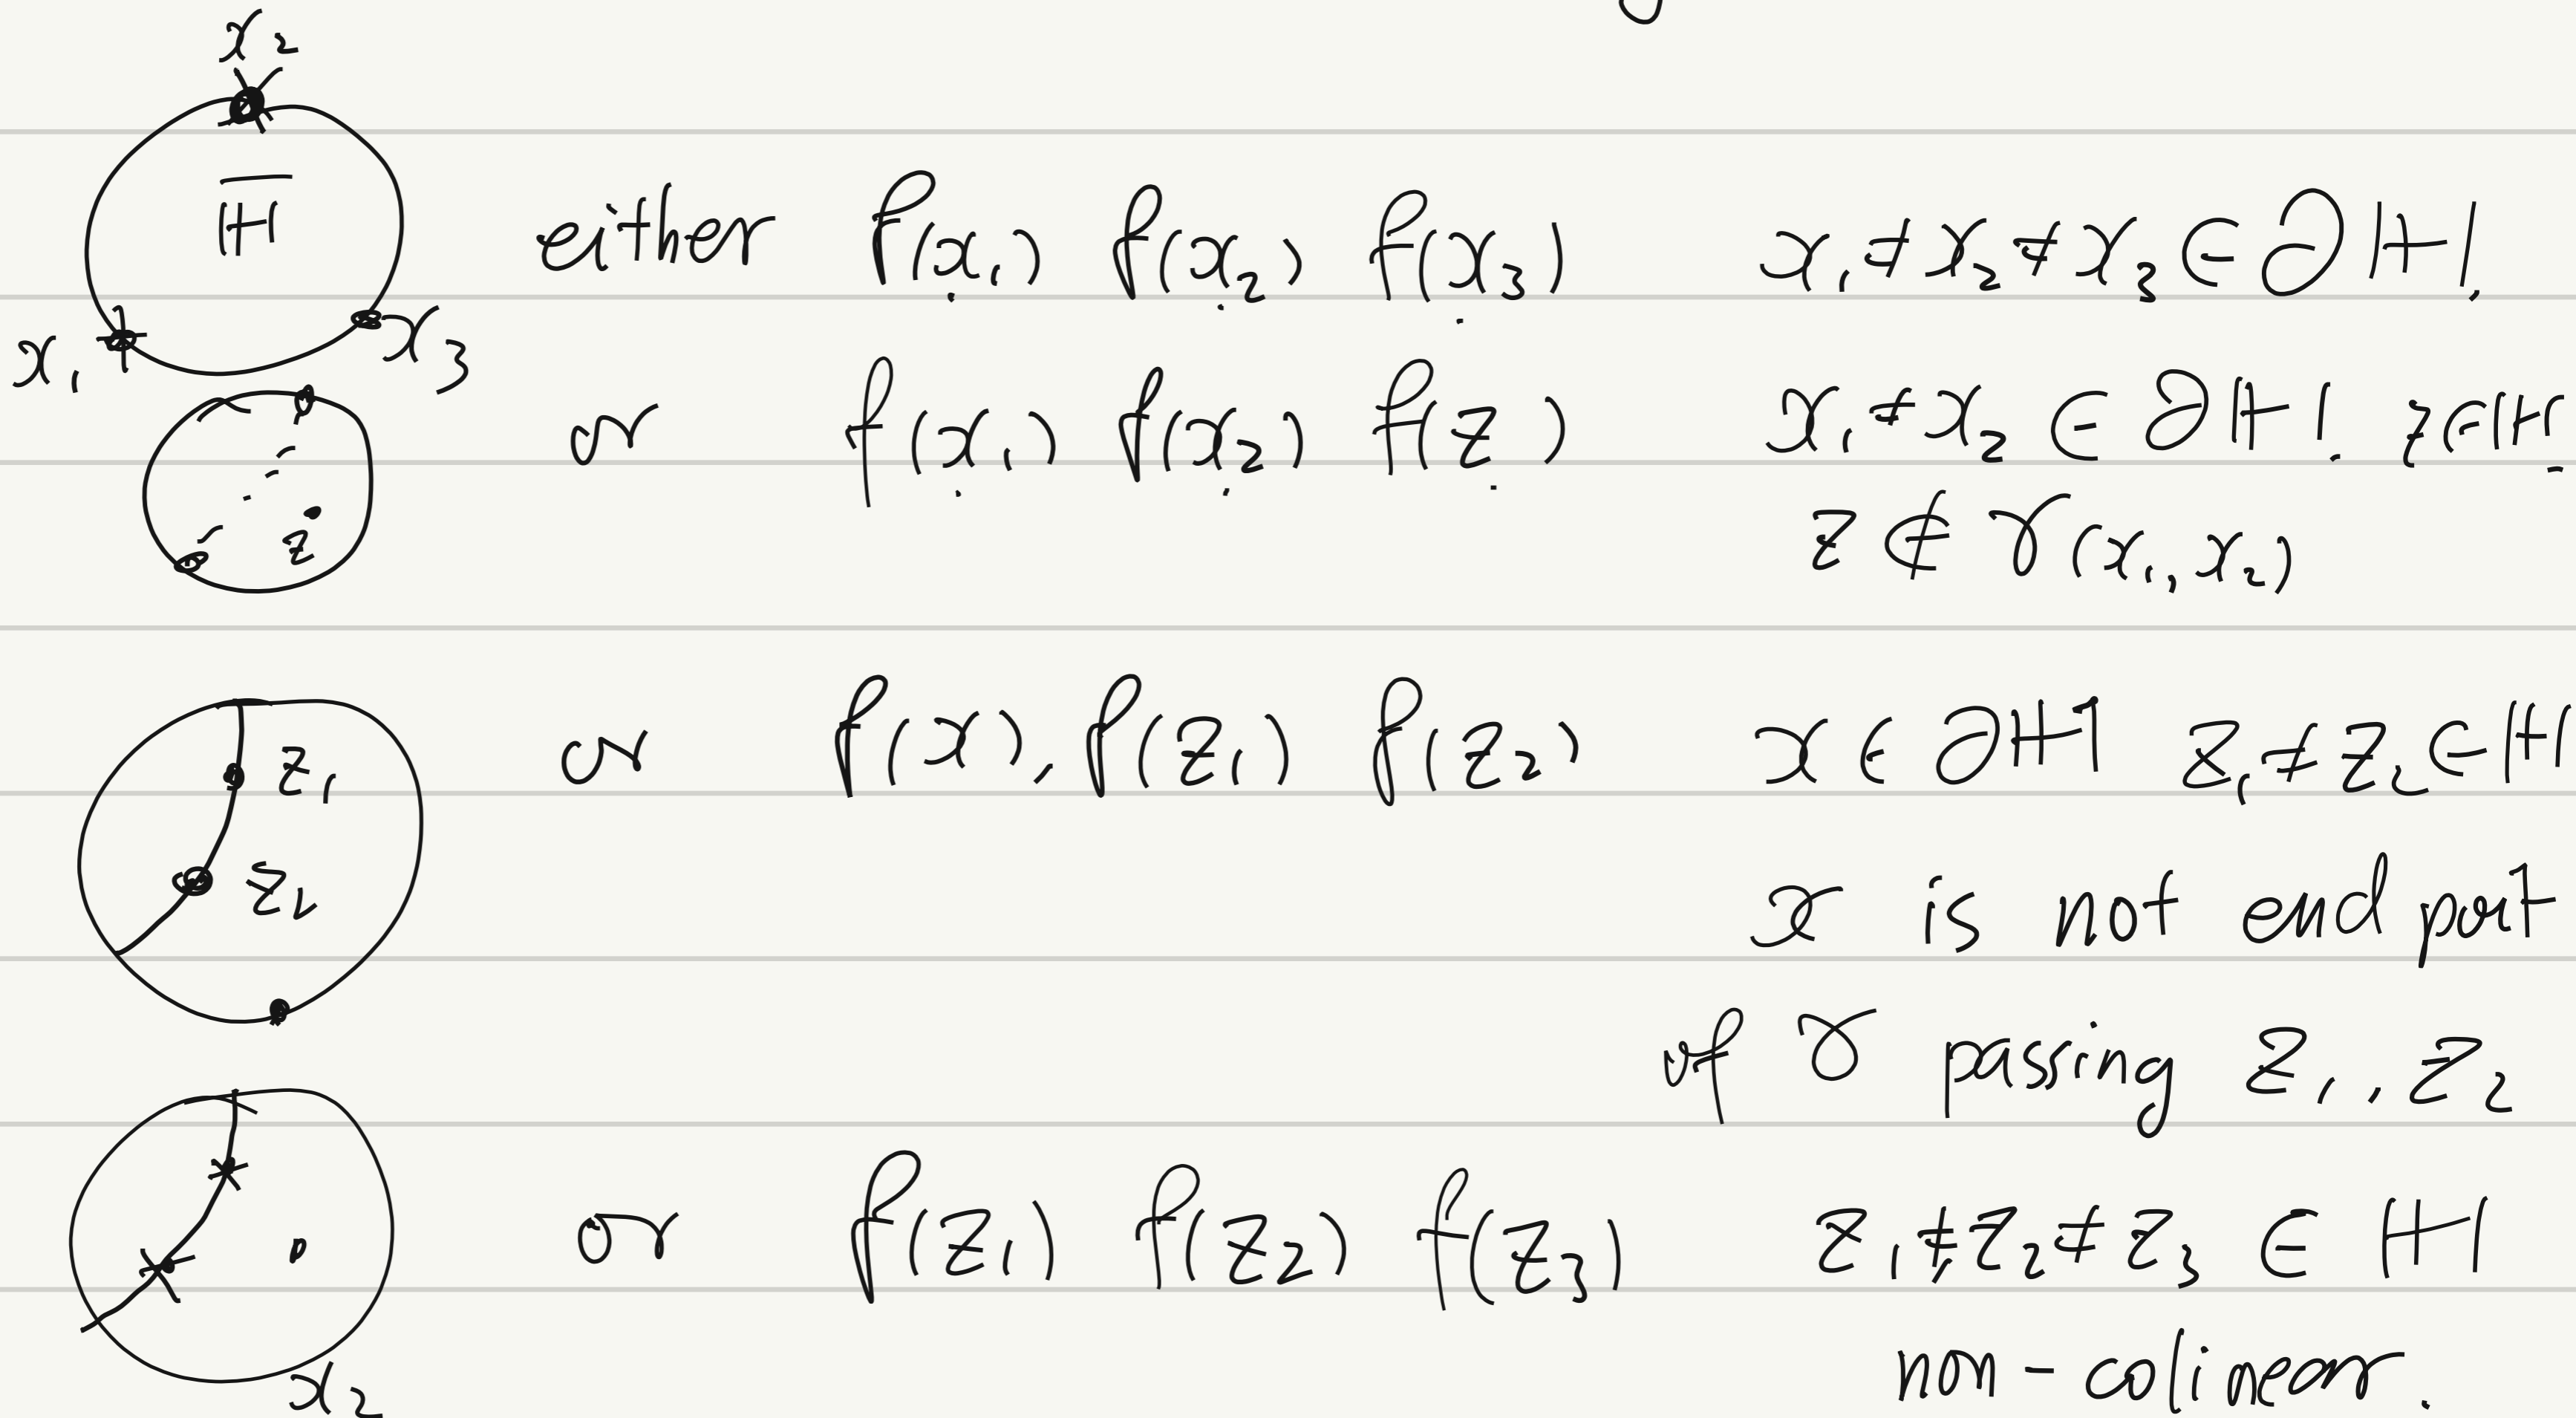 x₂
H̅
either f(x₁) f(x₂) f(x₃) x₁ ≠ x₂ ≠ x₃ ∈ ∂H.
x₁ x₃
or f(x₁) f(x₂) f(z) x₁ ≠ x₂ ∈ ∂H. z ∈ H
z
z ∉ γ(x₁, x₂)
z₁
or f(x), f(z₁) f(z₂) x ∈ ∂H z₁ ≠ z₂ ∈ H
z₂
x is not end point
of γ passing z₁, z₂
or f(z₁) f(z₂) f(z₃) z₁ ≠ z₂ ≠ z₃ ∈ H
x₂
non-colinear.